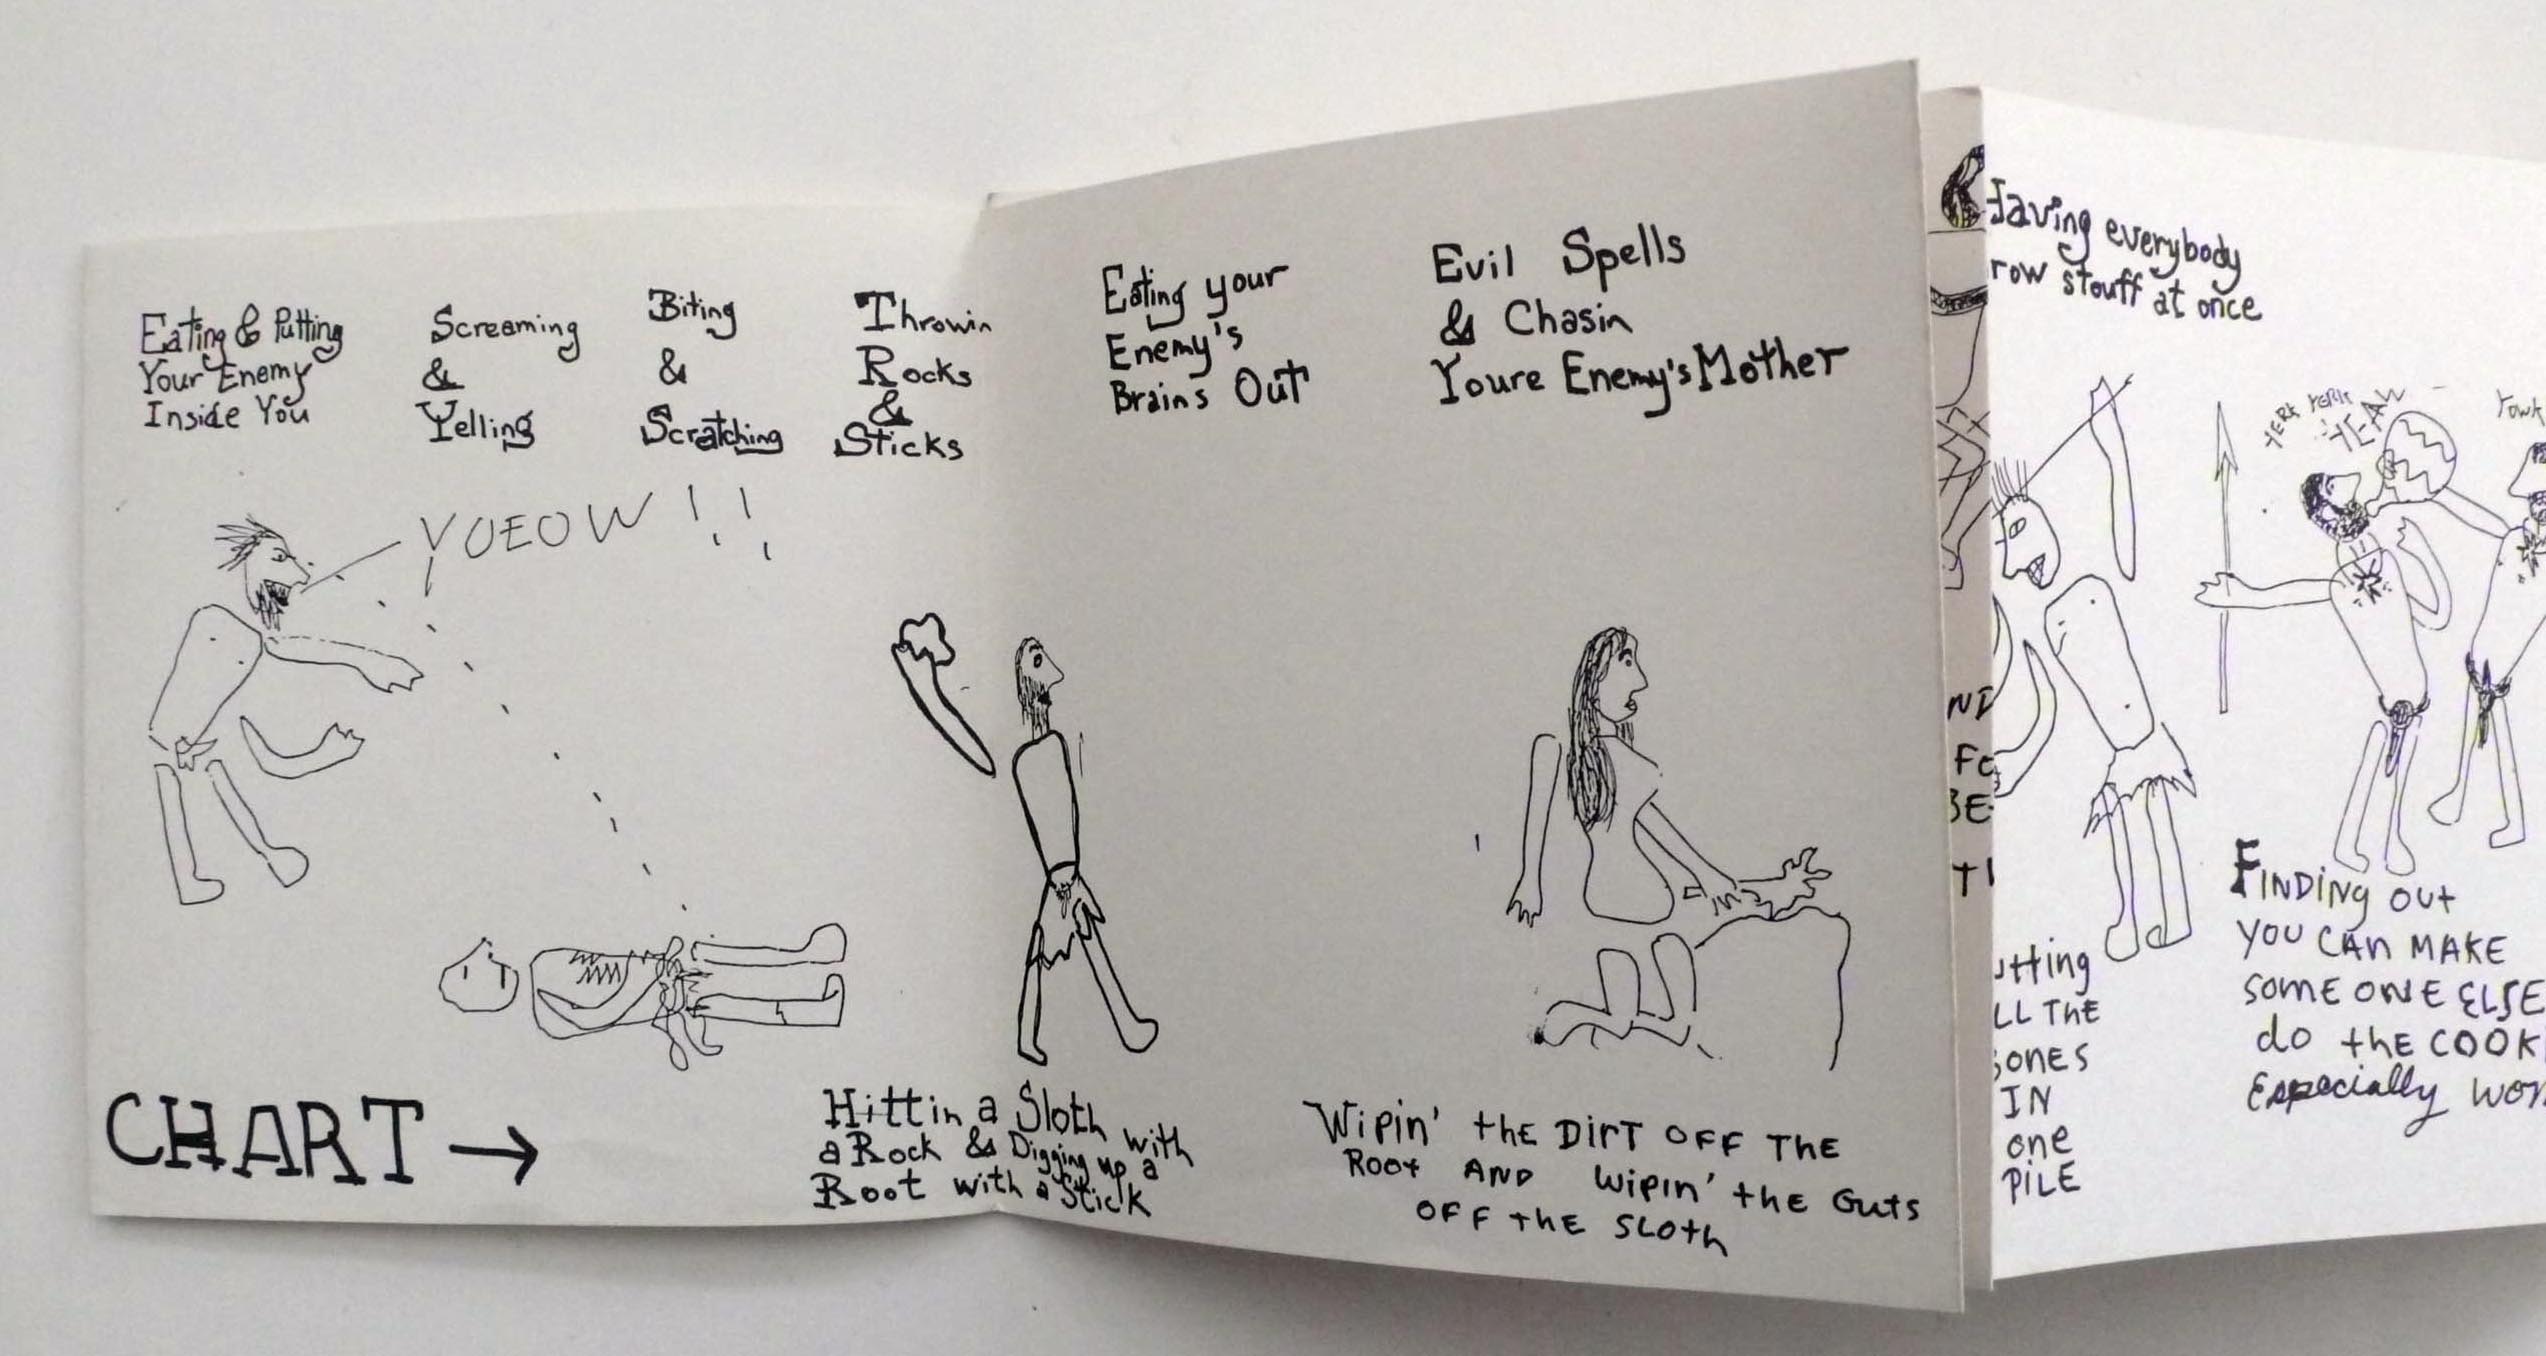 Eating & Putting
Your Enemy
Inside You
Screaming
&
Yelling
Biting
&
Scratching
Throwin
Rocks
&
Sticks
Eating your
Enemy's
Brains Out
Evil Spells
& Chasin
Youre Enemy's Mother
Having everybody
row stouff at once
YOEOW!!
YERK YERK
YEAW
CHART →
Hittin a Sloth with
a Rock & Digging up a
Root with a Stick
Wipin' the DIRT OFF THE
Root AND Wipin' the Guts
OFF the SLoth
utting
LL THE
ones
IN
one
PILE
FINDiNg out
you CAn MAKE
someone ELSE
do the COOK
Especially